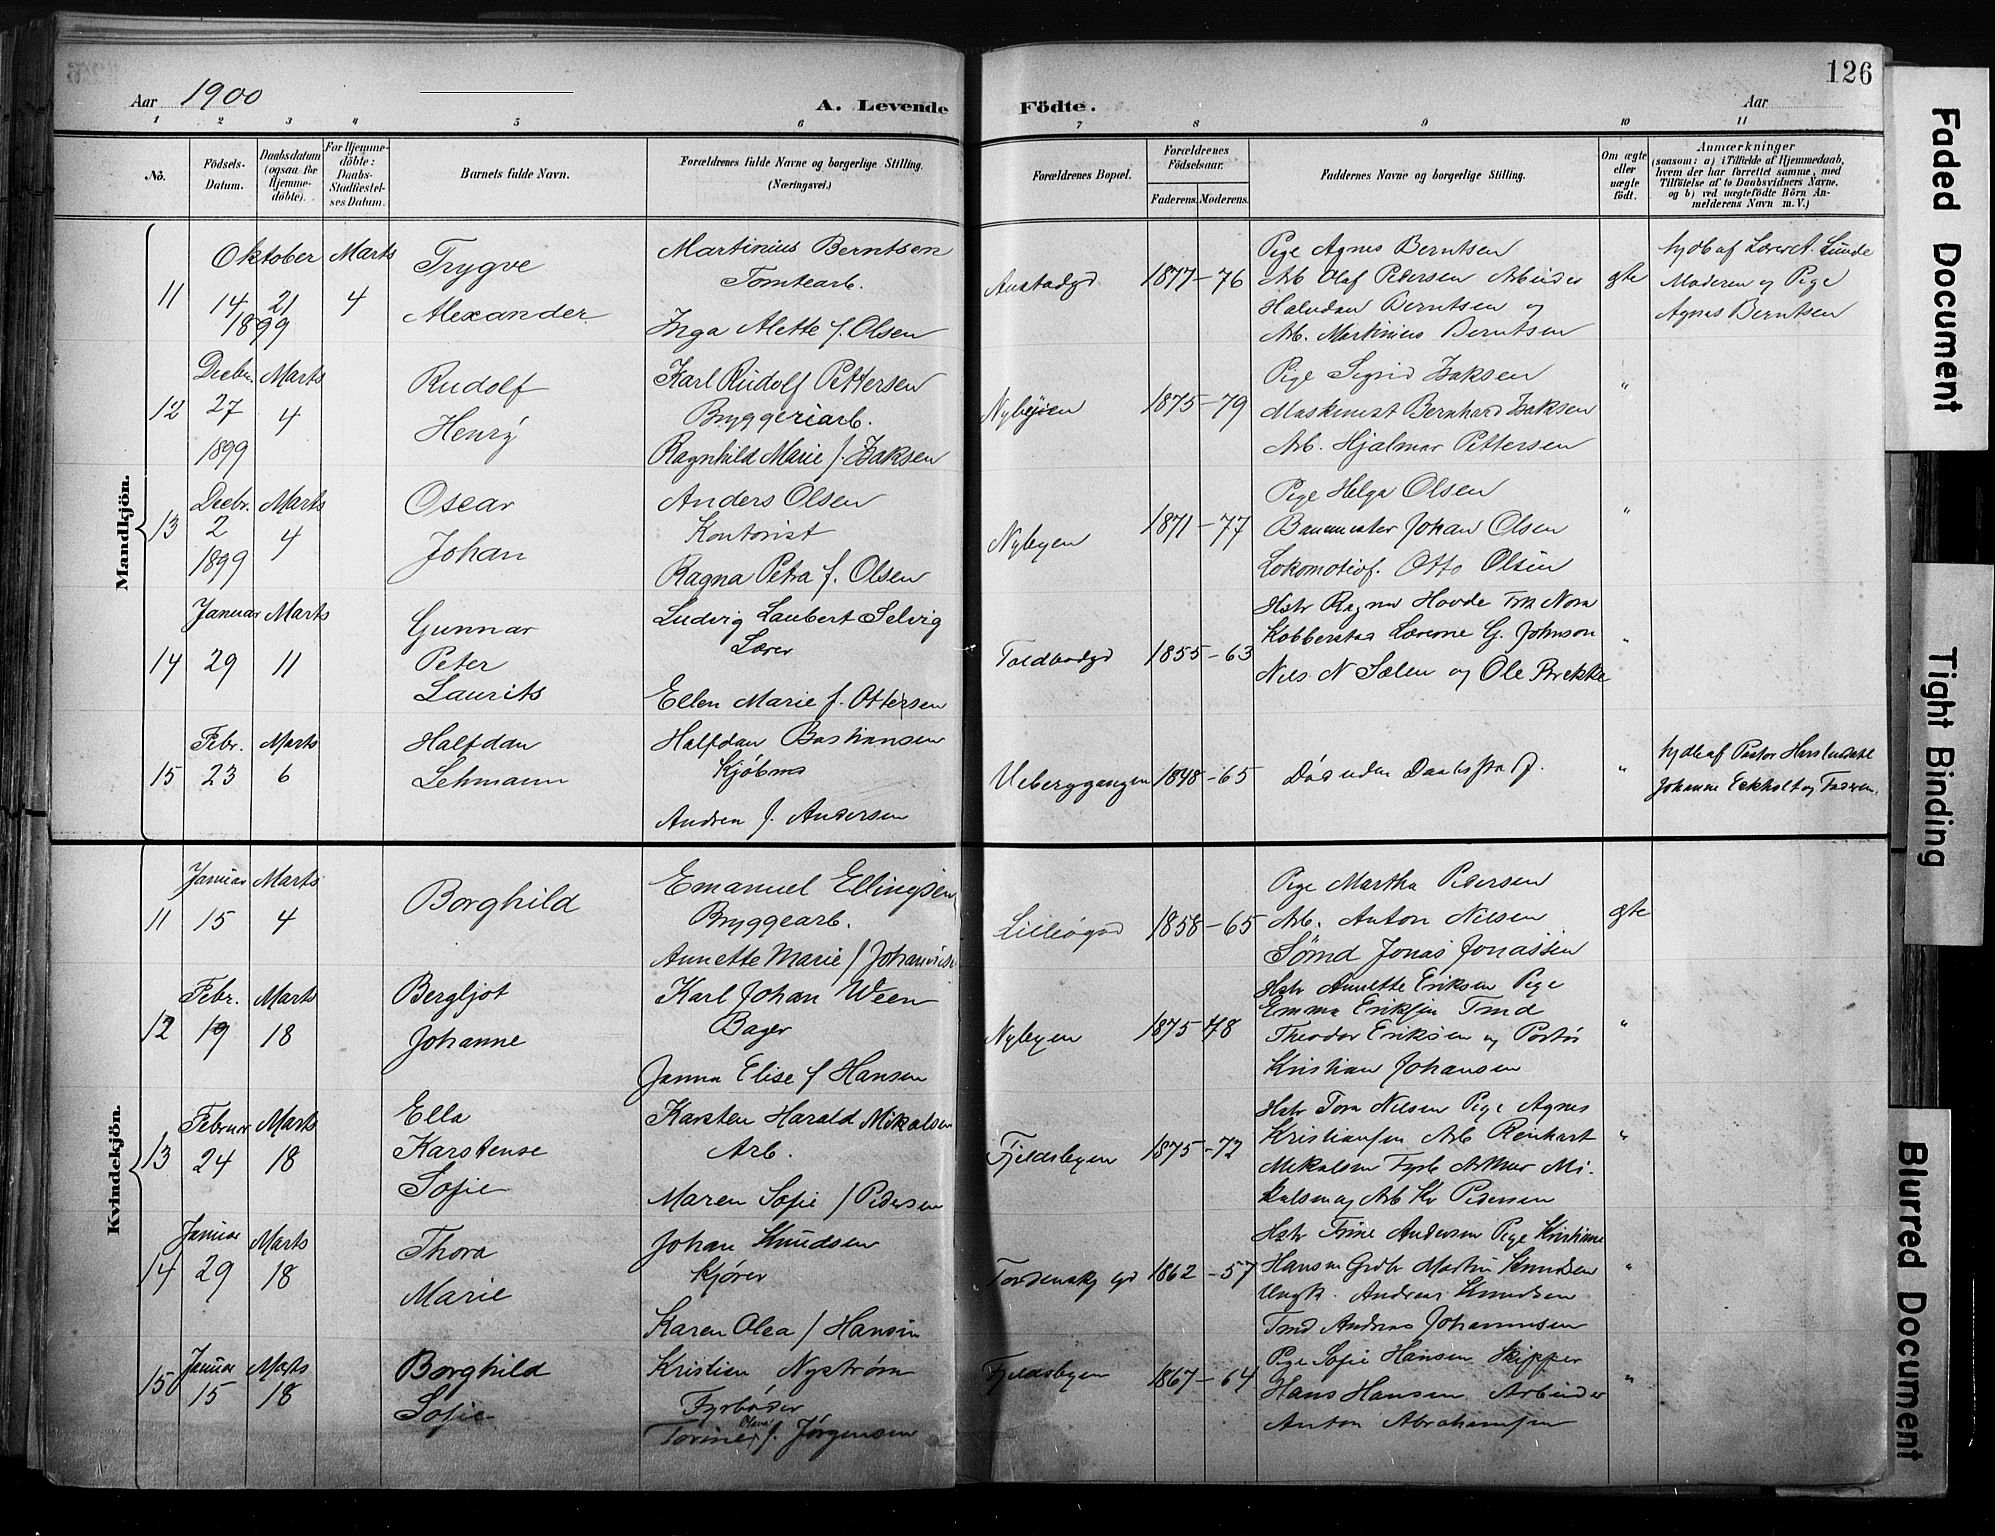 126
Aar 1900
A. Levende
Födte.
Aar
1 2 3 4 5 6 7 8 9 10 11
No.
Födsels-
Datum.
Daabsdatum
(ogsaa for
Hjemme-
döbte).
For Hjemme-
döbte:
Daabs-
Stadfæstel-
ses Datum.
Barnets fulde Navn.
Forældrenes fulde Navne og borgerlige Stilling.
(Næringsvei.)
Forældrenes Bopæl.
Forældrenes
Födselsaar.
Faderens. Moderens.
Faddernes Navne og borgerlige Stilling.
Om ægte
eller
uægte
födt.
Anmærkninger
(saasom: a) i Tilfælde af Hjemmedaab,
hvem der har forrettet samme, med
Tilföielse af to Daabsvidners Navne,
og b) ved uægtefödte Börn An-
melderens Navn m. V.)
Mandkjön.
11
Oktober
14
1899
21
Marts
4
Trygve
Alexander
Martinius Berntsen
Tomtearb.
Inga Alette f. Olsen
1877-76
Pige Agnes Berntsen
Arb Olaf Pedersen Arbeider
Halvdan Berntsen og
Arb. Martinius Berntsen
gte
hjdb af Lærer A. Lunde
Moderen og Pige
Agnes Berntsen
12
Decbr.
27
1899
Marts
4
Rudolf
Henry
Karl Rudolf Pettersen
Bryggeriarb.
Ragnhild Marie f. Isaksen
Nybyen
1875-79
Pige Sigrid Isaksen
Maskinist Bernhard Isaksen
Arb. Hjalmar Pettersen
"
13
Decbr.
2
1899
Marts
4
Oscar
Johan
Anders Olsen
Kontorist
Ragna Petra f. Olsen
Nybyen
1871-77
Pige Helga Olsen
Banemester Johan Olsen
Lokomotivf. Otto Olsen
"
14
Januar
29
Marts
11
Gunnar
Peter
Laurits
Ludvig Laubert Selvig
Lærer
Ellen Marie f. Ottersen
Toldbodgd
1855-63
Hstr Ragna Hovde Frk Nora
Kobberstad Lærerne G. Johnson
Nils N Sælen og Ole Brekke
"
15
Febr.
23
Marts
6
Halfdan
Lehmann
Halfdan Bastiansen
Kjøbmd
Andrea f. Andersen
Uebergangen
1848-65
Død uden Daabsstadf.
"
hjdb af Pastor
Johanne Eckholt og Faderen.
Kvindekjön.
11
Januar
15
Marts
4
Borghild
Emanuel Ellingsen
Bryggearb.
Annette Marie f Johansen
Lilleøgd
1858-65
Pige Martha Pedersen
Arb. Anton Nilsen
Sømd Jonas Jonassen
gte
12
Febr.
19
Marts
18
Bergljot
Johanne
Karl Johan Ween
Bager
Janna Elise f Hansen
Nybyen
1875-78
Hstr Annette Eriksen Pige
Emma Eriksen Tmd
Theodor Eriksen og
Kristian Johansen
"
13
Februar
24
Marts
18
Ella
Karstense
Sofie
Karsten Harald Mikalsen
Arb.
Maren Sofie f Pedersen
Fjeldsbyen
1875-72
Hstr Tora Nilsen Pige Agnes
Kristiansen Arb Reinhart
Mikalsen Fyrb Arthur Mi-
kalsen og Arb Kr Pedersen
"
14
Januar
29
Marts
18
Thora
Marie
Johan Knudsen
Kjører
Karen Olea f Hansen
Tordenskj gd
1862-57
Hstr Trine Andersen Pige Kristiane
Hansen Grdbr Martin Knudsen
Ungk. Andreas Knudsen
Tmd Andreas Johannesen
"
15
Januar
15
Marts
18
Borghild
Sofie
Kristian Nystrøm
Fyrbøder
Torine Olava f. Jørgensen
Fjeldsbyen
1867-64
Pige Sofie Hansen Skipper
Hans Hansen Arbeider
Anton Abrahamsen
"
Faded Document
Tight Binding
Blurred Document